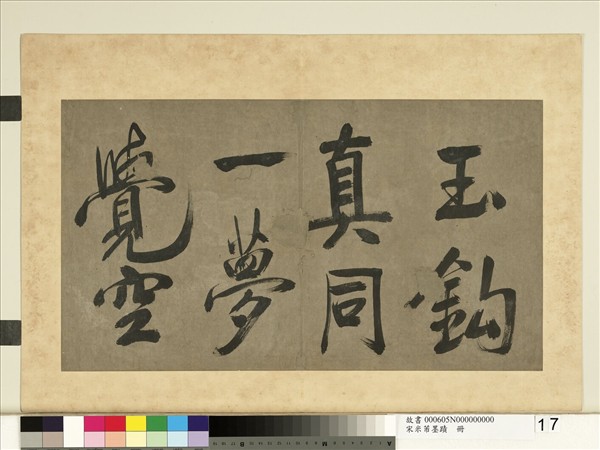 玉鈎
真同
一夢
覺空
故書 000605N000000000
宋米芾墨蹟 冊
17